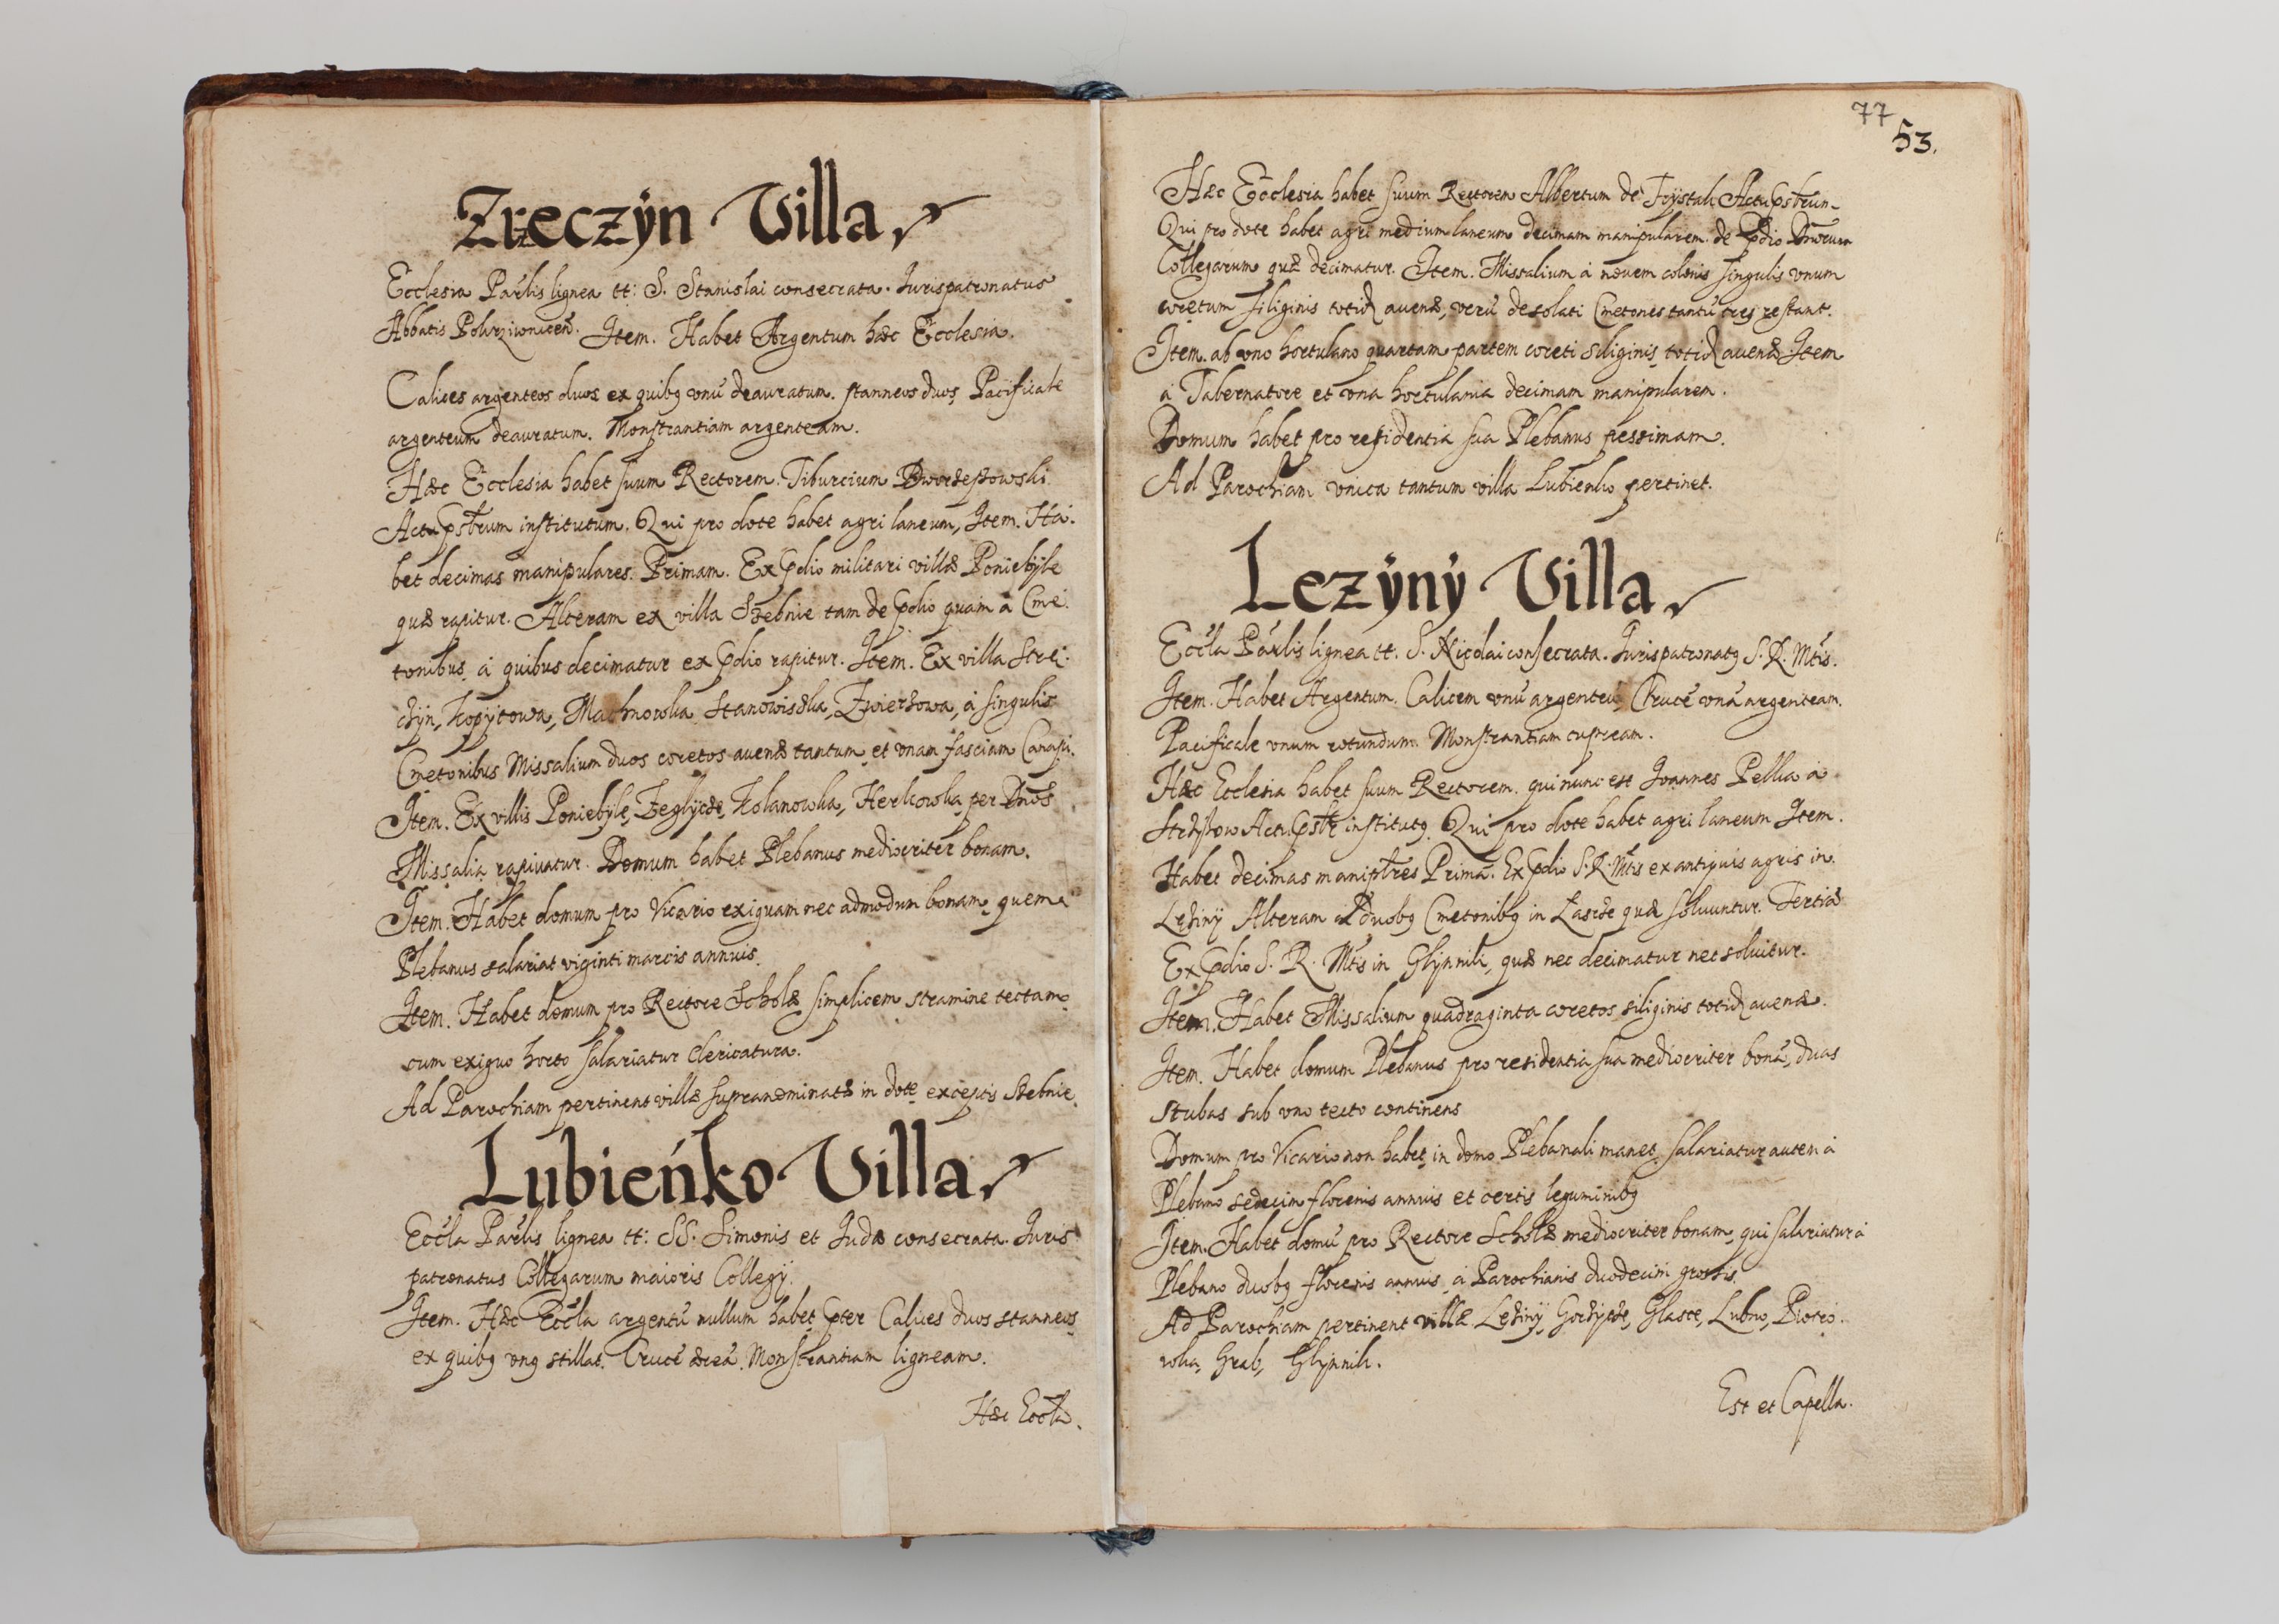 Zręczyn Villa
Ecclesia Parlis lignea tt: S. Stanislai consecrata. Jurispatronatus
Abbatis Pokrziwnicen. Item. Habet Argentum hæc Ecclesia.
Calices argenteos duos ex quibq vnu deauratum. stanneos duos Pacificale
argenteum deauratum. Monstrantiam argenteam.
Hæc Ecclesia habet suum Rectorem. Tiburcium
Actu institutum. Qui pro dote habet agri laneum, Item. Ha-
bet decimas manipulares. Primam. Ex militari villæ Poniebÿle
quæ rapitur. Alteram ex villa Szebnie tam de quam à Cme-
tonibus à quibus decimatur ex rapitur. Item. Ex villa
Kopÿtowa, Machnowka Stanowiszka, Zwierzowa, à singulis
Cmetonibus Missalium duos coretos auenæ tantum et vnam fasciam Canapi.
Item. Ex villis Poniebÿle, Zeglÿcze, Kolanowka, Herkowka per Dnos
Missalia rapiuntur. Domum habet Plebanus mediocriter bonam.
Item. Habet domum pro Vicario exiguam nec admodum bonam, quem
Plebanus salariat viginti marcis annuis.
Item. Habet domum pro Rectore Scholæ simplicem stramine tectam
cum exiguo horto salariatur Clericatura.
Ad Parochiam pertinent villæ supranominatæ in dote exceptis Szebnie.
Lubieńko Villa
Eccla Parlis lignea tt: SS. Simonis et Judæ consecrata. Juris
patronatus Collegarum maioris Collegÿ.
Item. Hæc Eccla argentu nullum habet pter Calices duos stanneos
ex quibq vnq stillat. Cruce ærea. Monstrantiam ligneam.
Hæc Eccla.
77
53.
Hæc Ecclesia habet suum Rectorem Albertum de Actu
Qui pro dote habet agri medium laneum decimam manipularem de Dnorum
Collegarum quæ decimatur. Item. Missalium à nouem colonis singulis vnum
coretum siliginis totid auenæ, veru desolati Cmetones tantu tres restant.
Item. ab vno hortulano quartam partem coreti siliginis totid auenæ. Item
à Tabernatore et vna hortulania decimam manipularem.
Domum habet pro residentia sua Plebanus pessimam.
Ad Parochiam vnica tantum villa Lubienko pertinet.
Lezÿnÿ Villa
Eccla Parlis lignea tt. S. Nicolai consecrata. Jurispatronatq S. R. Mtis.
Item. Habet Argentum. Calicem vnu argenteu, Cruce vna argenteam.
Pacificale vnum rotundum. Monstrantiam cupream.
Hæc Ecclesia habet suum Rectorem. qui nunc est Joannes Pelka à
Actu institutq. Qui pro dote habet agri laneum Item.
Habet decimas maniplres Prima. Ex S. R. Mtis ex antiquis agris in
Lezinÿ Alteram à duobq Cmetonibq in quæ soluuntur. Tertia
Ex S. R. Mtis in Glÿnnik, quæ nec decimatur nec soluitur.
Item. Habet Missalium quadraginta coretos siliginis totid auenæ.
Item. Habet domum Plebanus pro residentia sua mediocriter bona, duas
stubas sub vno tecto continens
Domum pro Vicario non habet in domo Plebanali manet, salariatur autem à
Plebano sedecim florenis annuis et certis leguminibq
Item. Habet domu pro Rectore Scholæ mediocriter bonam, qui salariatur à
Plebano duobq florenis annuis, à Parochianis duodecim grossis.
Ad Parochiam pertinent villæ Lezinÿ, Gorzÿcze, Glasce, Lubno, Piotro-
wka, Grab, Glÿnnik.
Est et Capella.